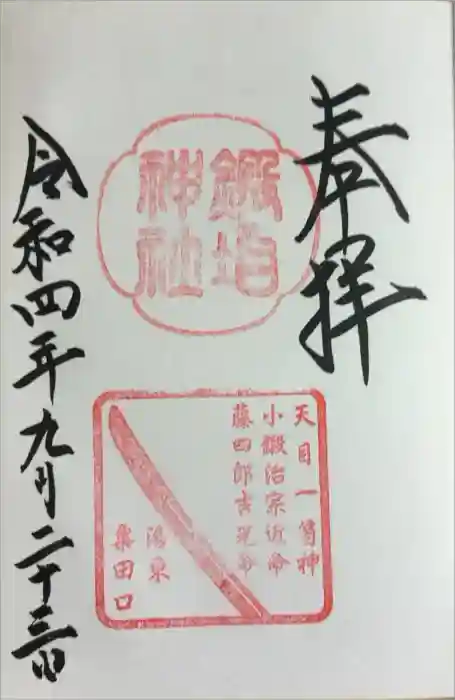 奉拝
鍛冶
神社
天目一箇神
小鍛冶宗近命
藤四郎吉光命
湯泉
粟田口
令和四年九月二十三日